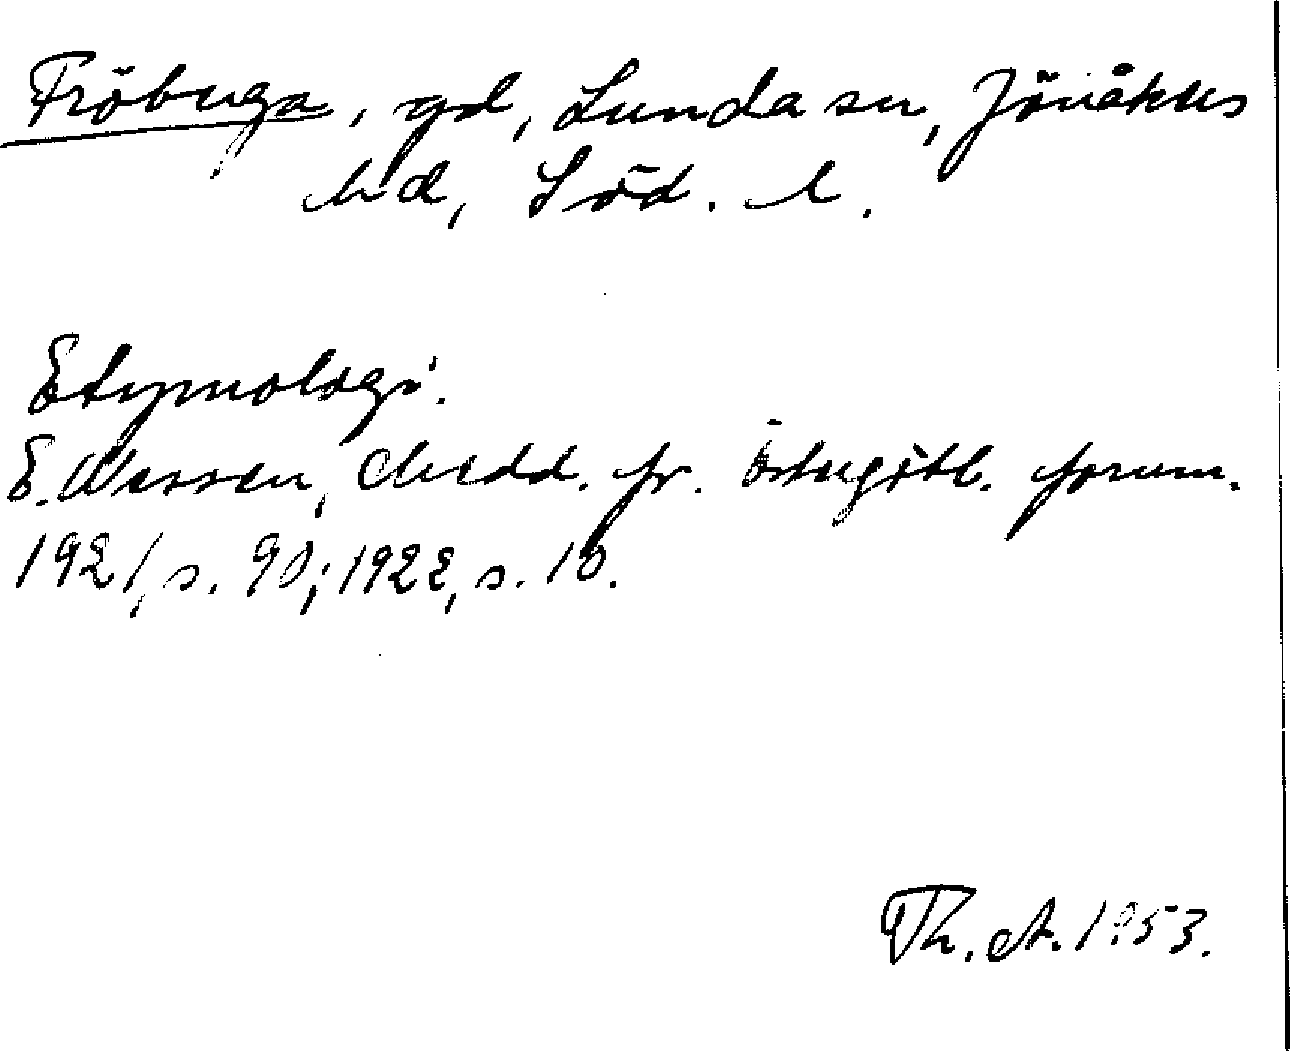 Fröbuga, gd, Lunda sn, Jönåkers
hd, Söd. l.
Etymologi.
E. Wessén, Medd. fr. Östergötl. fornm.
1921, s. 90; 1922, s. 10.
Th. A. 1953.